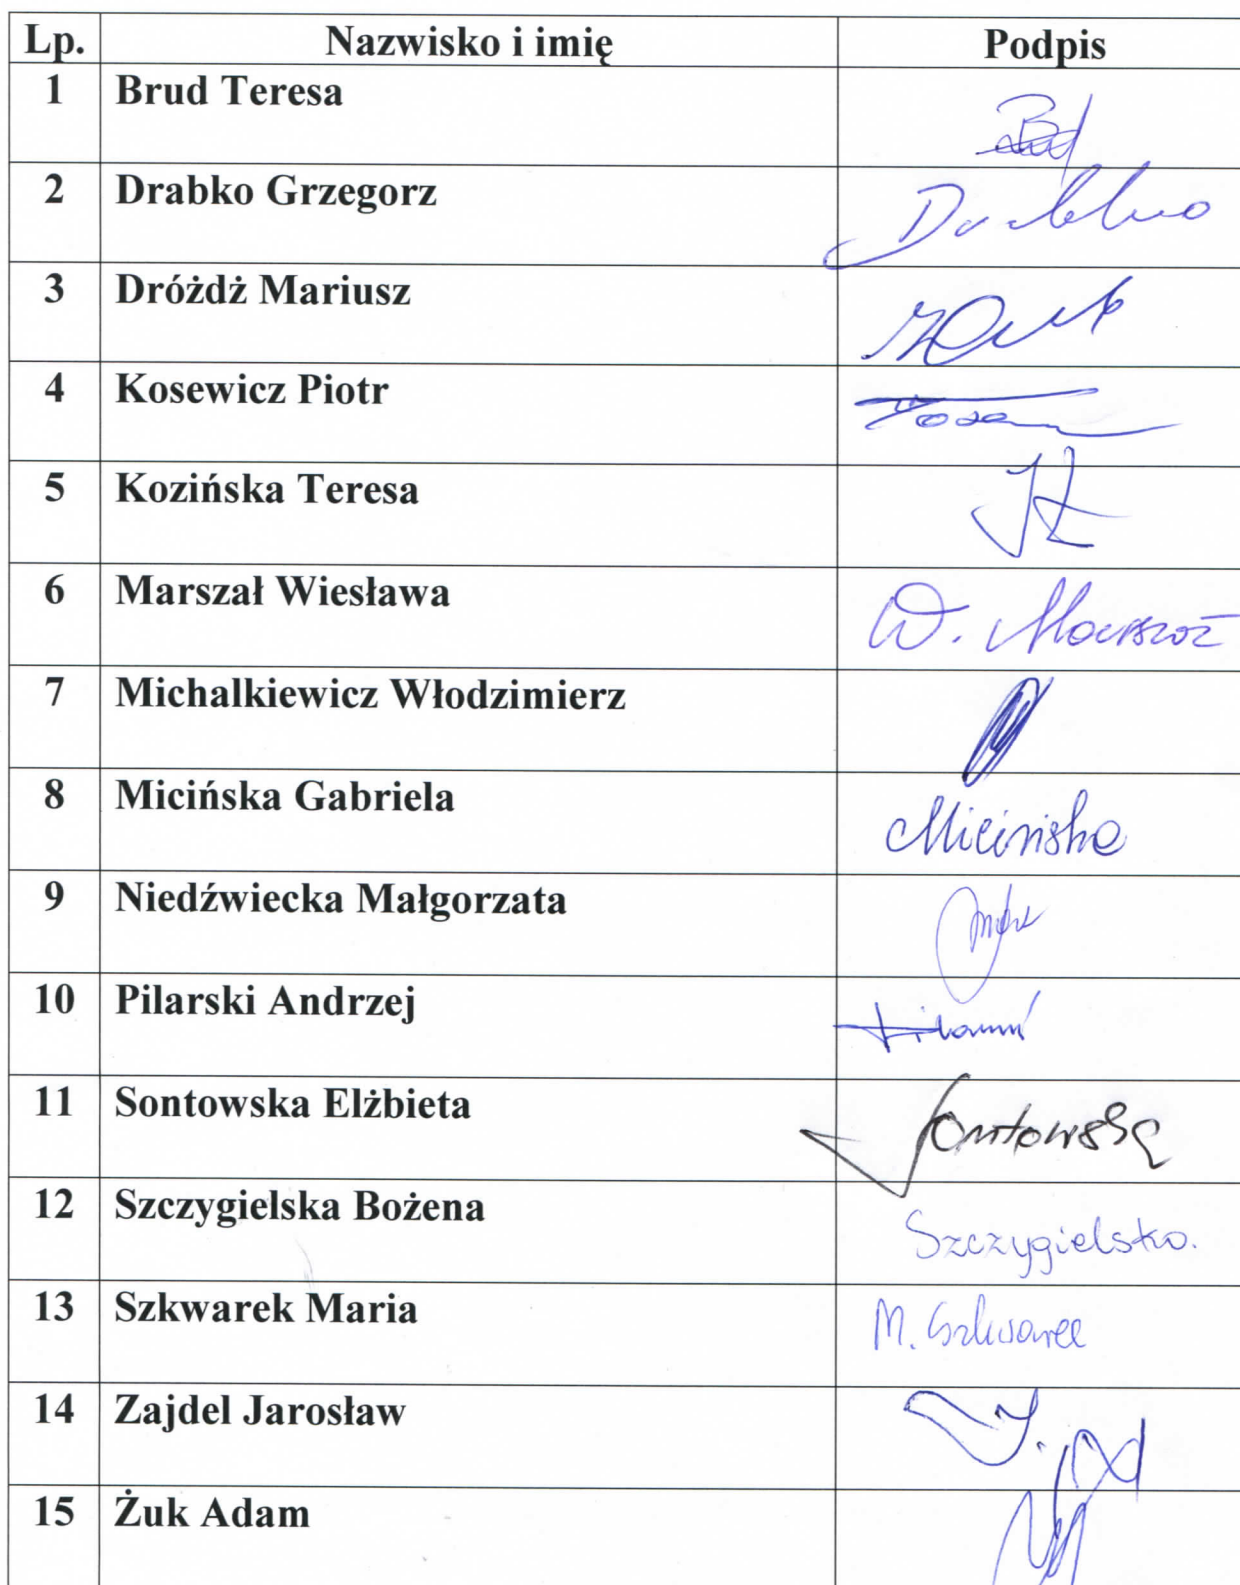 Lp. Nazwisko i imię Podpis
1 Brud Teresa
2 Drabko Grzegorz
3 Dróżdż Mariusz
4 Kosewicz Piotr
5 Kozińska Teresa
6 Marszał Wiesława W. Marszał
7 Michalkiewicz Włodzimierz
8 Micińska Gabriela Micińska
9 Niedźwiecka Małgorzata
10 Pilarski Andrzej
11 Sontowska Elżbieta Sontowska
12 Szczygielska Bożena Szczygielska.
13 Szkwarek Maria M. Szkwarek
14 Zajdel Jarosław
15 Żuk Adam